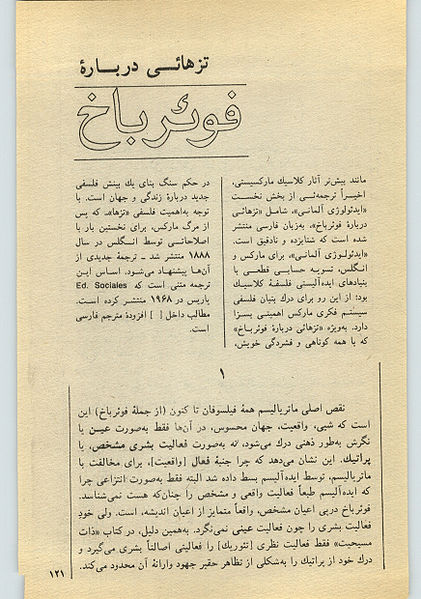 تزهائی دربارهٔ
فوئرباخ
مانند بیش‌تر آثار کلاسیك مارکسیستی،
اخیراً ترجمه‌ئی از بخش نخست
«ایدئولوژی آلمانی»، شامل «تزهائی
دربارهٔ فوئرباخ»، به‌زبان فارسی منتشر
شده است که شتابزده و نادقیق است.
«ایدئولوژی آلمانی»، برای مارکس و
انگلس، تسویه حسابی قطعی با
بنیادهای ایده‌آلیستی فلسفهٔ کلاسیك
بود؛ از این رو برای درك بنیان فلسفی
سیستم فکری مارکس اهمیتی بسزا
دارد. به‌ویژه «تزهائی دربارهٔ فوئرباخ»
که با همه کوتاهی و فشردگی خویش،
در حکم سنگ بنای یك بینش فلسفی
جدید دربارهٔ زندگی و جهان است. با
توجه به‌اهمیت فلسفی «تزها»، که پس
از مرگ مارکس، برای نخستین بار با
اصلاحاتی توسط انگلس در سال
۱۸۸۸ منتشر شد ـ ترجمهٔ جدیدی از
آن‌ها پیشنهاد می‌شود. اساس این
ترجمه متنی است که Ed. Sociales
پاریس در ۱۹۶۸ منتشر کرده است.
مطالب داخل [ ] افزودهٔ مترجم فارسی
است.
۱
نقص اصلی ماتریالیسم همهٔ فیلسوفان تا کنون (از جملهٔ فوئرباخ) این
است که شیی، واقعیت، جهان محسوس، در آن‌ها فقط به‌صورت عین یا
نگرش به‌طور ذهنی درك می‌شود، نه به‌صورت فعالیت بشری مشخص، یا
پراتیك. این نشان می‌دهد که چرا جنبهٔ فعال [واقعیت]، برای مخالفت با
ماتریالیسم، توسط ایده‌آلیسم بسط داده شد البته فقط به‌صورت انتزاعی چرا
که ایده‌آلیسم طبعاً فعالیت واقعی و مشخص را چنان‌که هست نمی‌شناسد.
فوئرباخ درپی اعیان مشخص، واقعاً متمایز از اعیان اندیشه، است. ولی خودِ
فعالیت بشری را چون فعالیت عینی نمی‌نگرد. به‌همین دلیل، در کتاب «ذات
مسیحیت» فقط فعالیت نظری [تئوریك] را فعالیتی اصالتاً بشری می‌گیرد و
درك خود از پراتیك را به‌شکلی از تظاهر حقیر جهود وارانهٔ آن محدود می‌کند.
۱۲۱